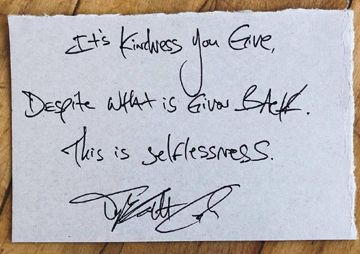 It's Kindness You Give,
Despite What is Given Back.
This is selflessness.